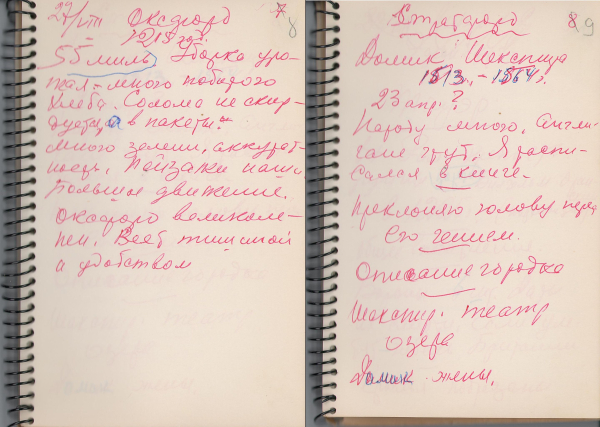 27/VIII Оксфорд
7
8
1213 год.
55 миль, Уборка уро-
жая – много побитого
хлеба. Солома не скир-
дуется, а в пакеты.
Много зелени, аккурат-
ность. Пейзажи наши.
Большое движение.
Оксфорд великоле-
пен. Веет тишиной
и удобством
Стратфорд
8
9
Домик Шекспира
1564 г.
23 апр.?
Народу много. Англи-
чане чтут. Я распи-
сался в книге.
Преклоняю голову перед
его гением.
Описание городка
Шекспир. театр
озера
Домик жены.